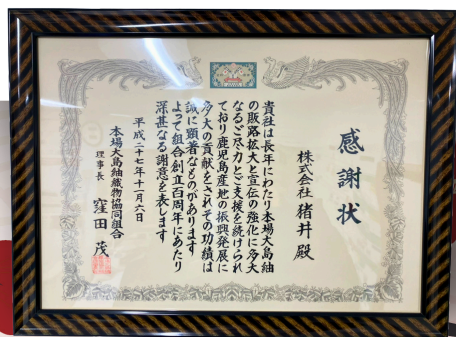 感謝状
株式会社 猪井 殿
貴社は長年にわたり本場大島紬
の販路拡大と宣伝の強化に多大
なるご尽力とご支援を続けられ
ており鹿児島産地の振興発展に
多大の貢献をされその功績は
誠に顕著なものがあります
よって組合創立百周年にあたり
深甚なる謝意を表します
平成二十七年十一月六日
本場大島紬織物協同組合
理事長 窪田 茂